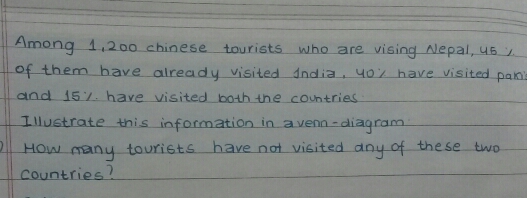 Among 1,200 chinese tourists who are vising Nepal, 45 %
of them have already visited India, 40% have visited pakis
and 15%. have visited both the countries
Illustrate this information in a venn-diagram.
How many tourists have not visited any of these two
countries?